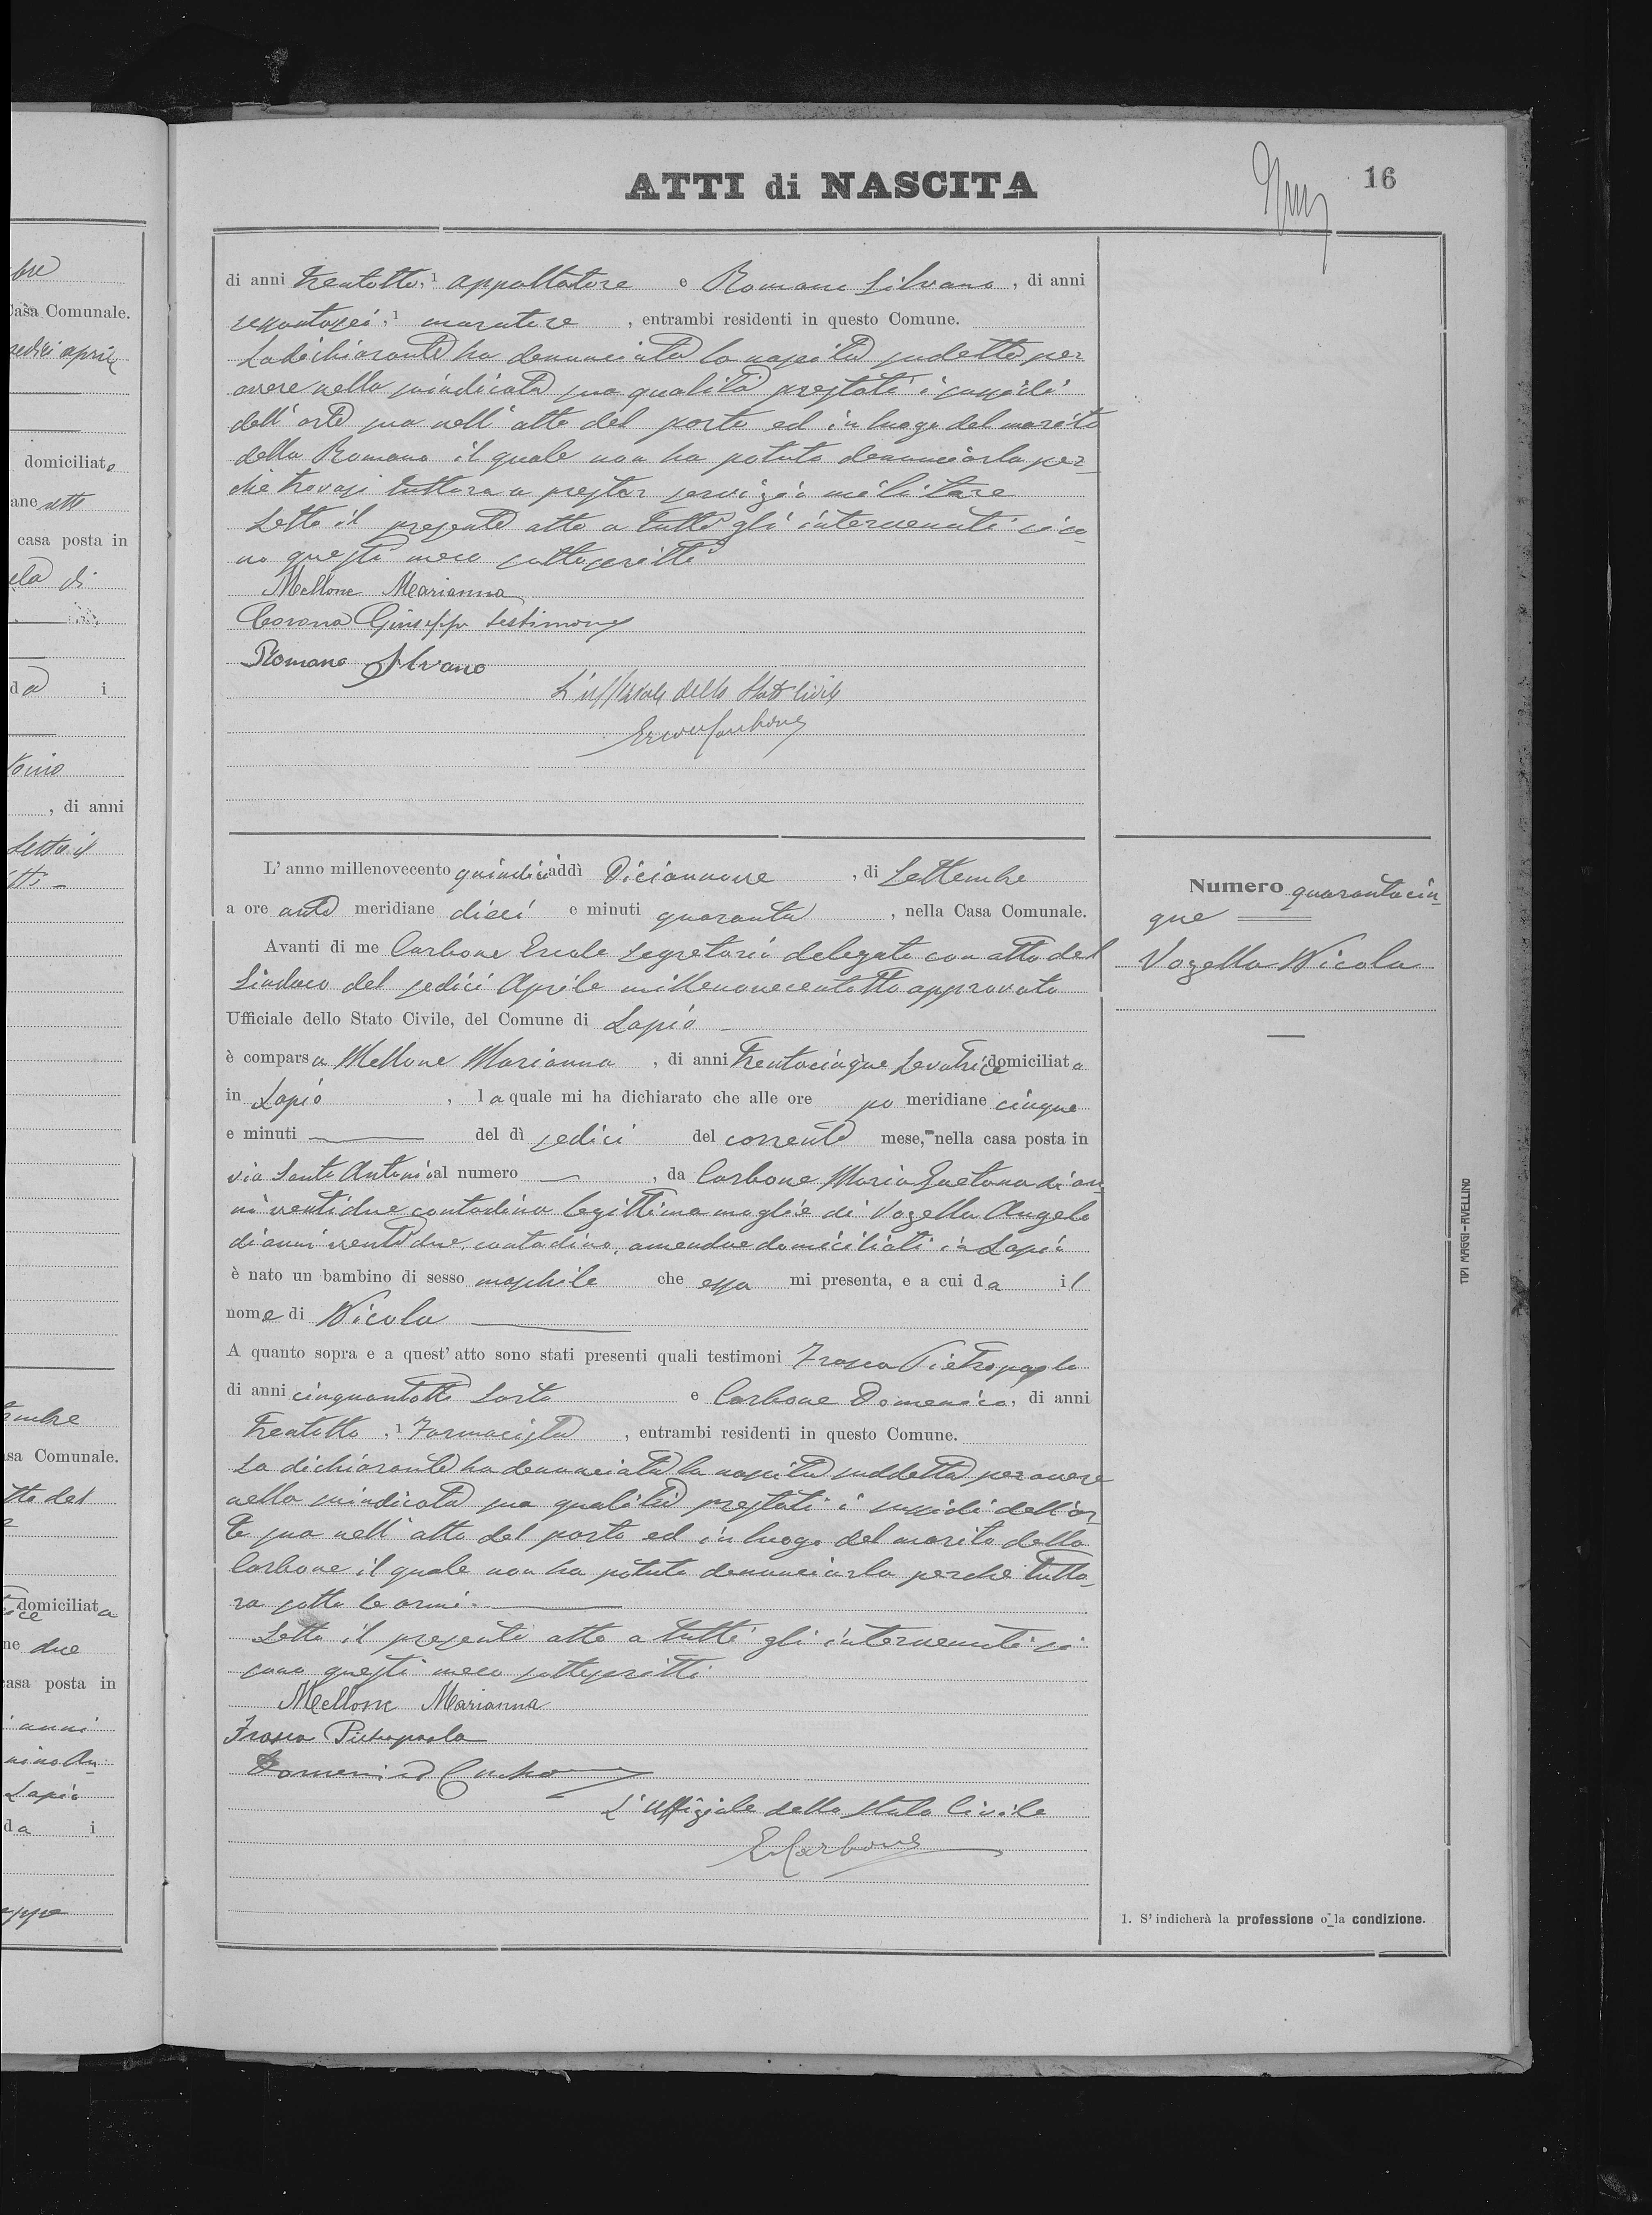 ATTI di NASCITA
16
di anni trentotto, 1 appaltatore e Romano Silvano, di anni
sessantasei, 1 muratore, entrambi residenti in questo Comune.
La dichiarante ha denunciato la nascita sudetta per
avere nella suindicata sua qualità prestati i sussidi
dell'arte sua nell'atto del parto ed in luogo del marito
della Romano il quale non ha potuto denunciarla per-
chè trovasi tuttora a prestar servizio militare
Letto il presente atto a tutti gli intervenuti si so-
no questi meco sottoscritti
Mellone Marianna
Corona Giuseppe testimone
Romano Silvano
L'uffiziale dello Stato Civile
Ercole Carbone
L'anno millenovecento quindici addì Diciannove, di Settembre
a ore anti meridiane dieci e minuti quaranta, nella Casa Comunale.
Avanti di me Carbone Ercole Segretario delegato con atto del
Sindaco del sedici Aprile millenovecentotto approvato
Ufficiale dello Stato Civile, del Comune di Lapio
è comparsa Mellone Marianna, di anni trentacinque Levatrice domiciliata
in Lapio, la quale mi ha dichiarato che alle ore po meridiane cinque
e minuti — del dì sedici del corrente mese, nella casa posta in
via Santo Antonio al numero —, da Carbone Maria Gaetana di an-
ni ventidue contadina legittima moglie di Vozella Angelo
di anni ventidue, contadino, amendue domiciliati in Lapio
è nato un bambino di sesso maschile che essa mi presenta, e a cui da il
nome di Nicola
A quanto sopra e a quest'atto sono stati presenti quali testimoni Frasca Pietropaolo
di anni cinquantotto Sarto e Carbone Domenico, di anni
trentotto, 1 Farmacista, entrambi residenti in questo Comune.
La dichiarante ha denunciata la nascita suddetta per avere
nella suindicata sua qualità prestati i sussidi dell'ar-
te sua nell'atto del parto ed in luogo del marito della
Carbone il quale non ha potuto denunciarla perchè tutto-
ra sotto le armi.
Letto il presente atto a tutti gli intervenuti si
sono questi meco sottoscritti
Mellone Marianna
Frasca Pietropaolo
Domenico Carbone
L'Uffiziale dello Stato Civile
E. Carbone
Numero quarantacin-
que
Vozella Nicola
1. S'indicherà la professione o la condizione.
TIPI MAGGI - AVELLINO
bre
Casa Comunale.
sedici aprile
domiciliato
casa posta in
di
da i
, di anni
Letto il
Casa Comunale.
tto del
domiciliata
ne due
casa posta in
anni
Lapio
da i